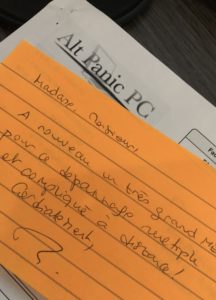 Alt Panic PC
Fac
Madame, Monsieur,
A nouveau un très grand Me
pour ce dépannage multiple
et compliqué à distance!
Cordialement,